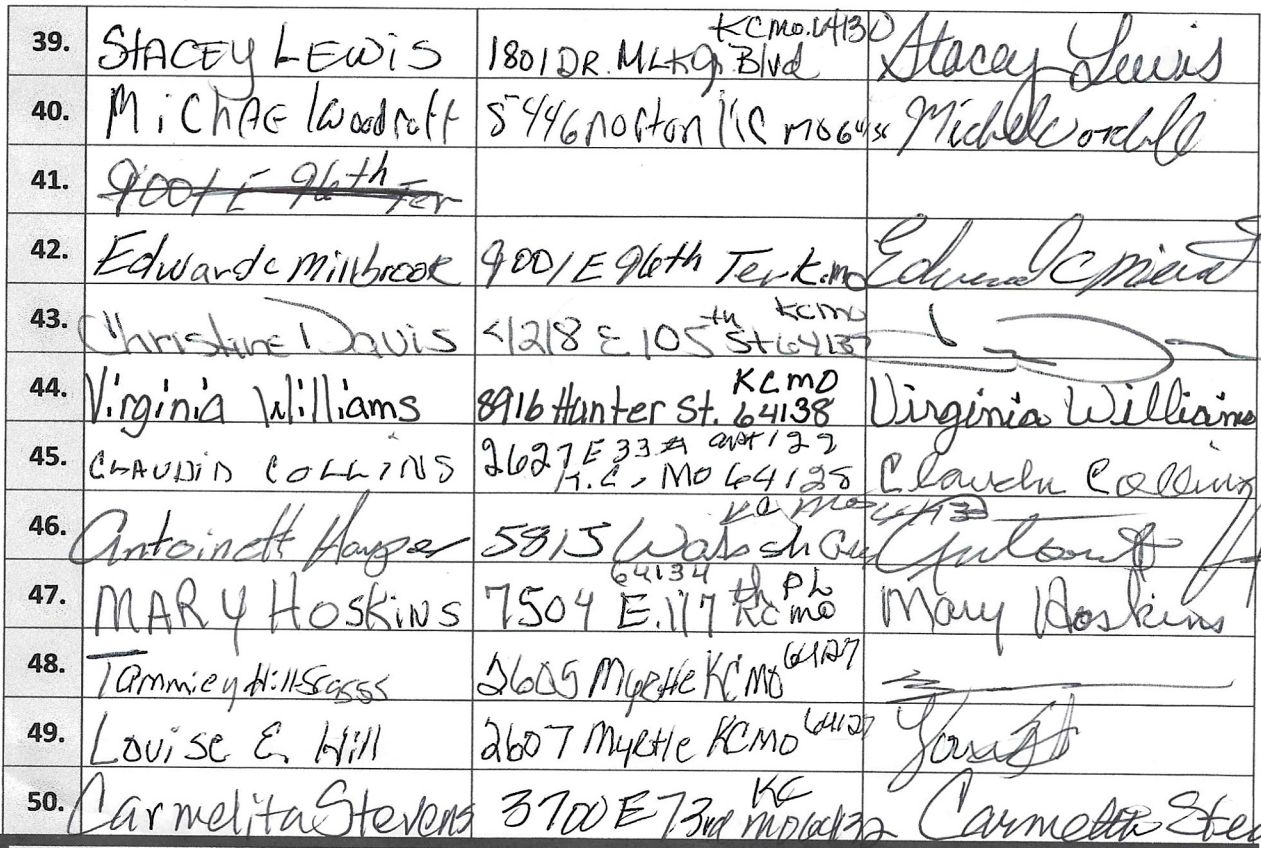 39. STACEY LEWIS 1801 DR. MLK Jr. Blvd KCMO. 64130 Stacey Lewis
40. MiChAE Woodruff 5446 norton KC mo
41. 9001 E 96th Ter
42. Edward c Millbrook 9001 E 96th Ter K.mo
43. Christine Davis 1218 E 105th St KCMO 64137
44. Virginia Williams 8916 Hunter St. KCMO 64138 Virginia Williams
45. CLAUDIA COLLINS 2627 E 33rd apt 122 K.C, MO 64128 Claudia Collins
46. Antoinett Harper 5815
47. MARY HOSKINS 7504 E. 117th PL KC mo 64134 Mary Hoskins
48. Tammie 2605 Myrtle KCMO 64127
49. Louise E. Hill 2607 Myrtle KCMO 64127
50. Carmelita Stevens 3700 E 73rd KC MO 64132